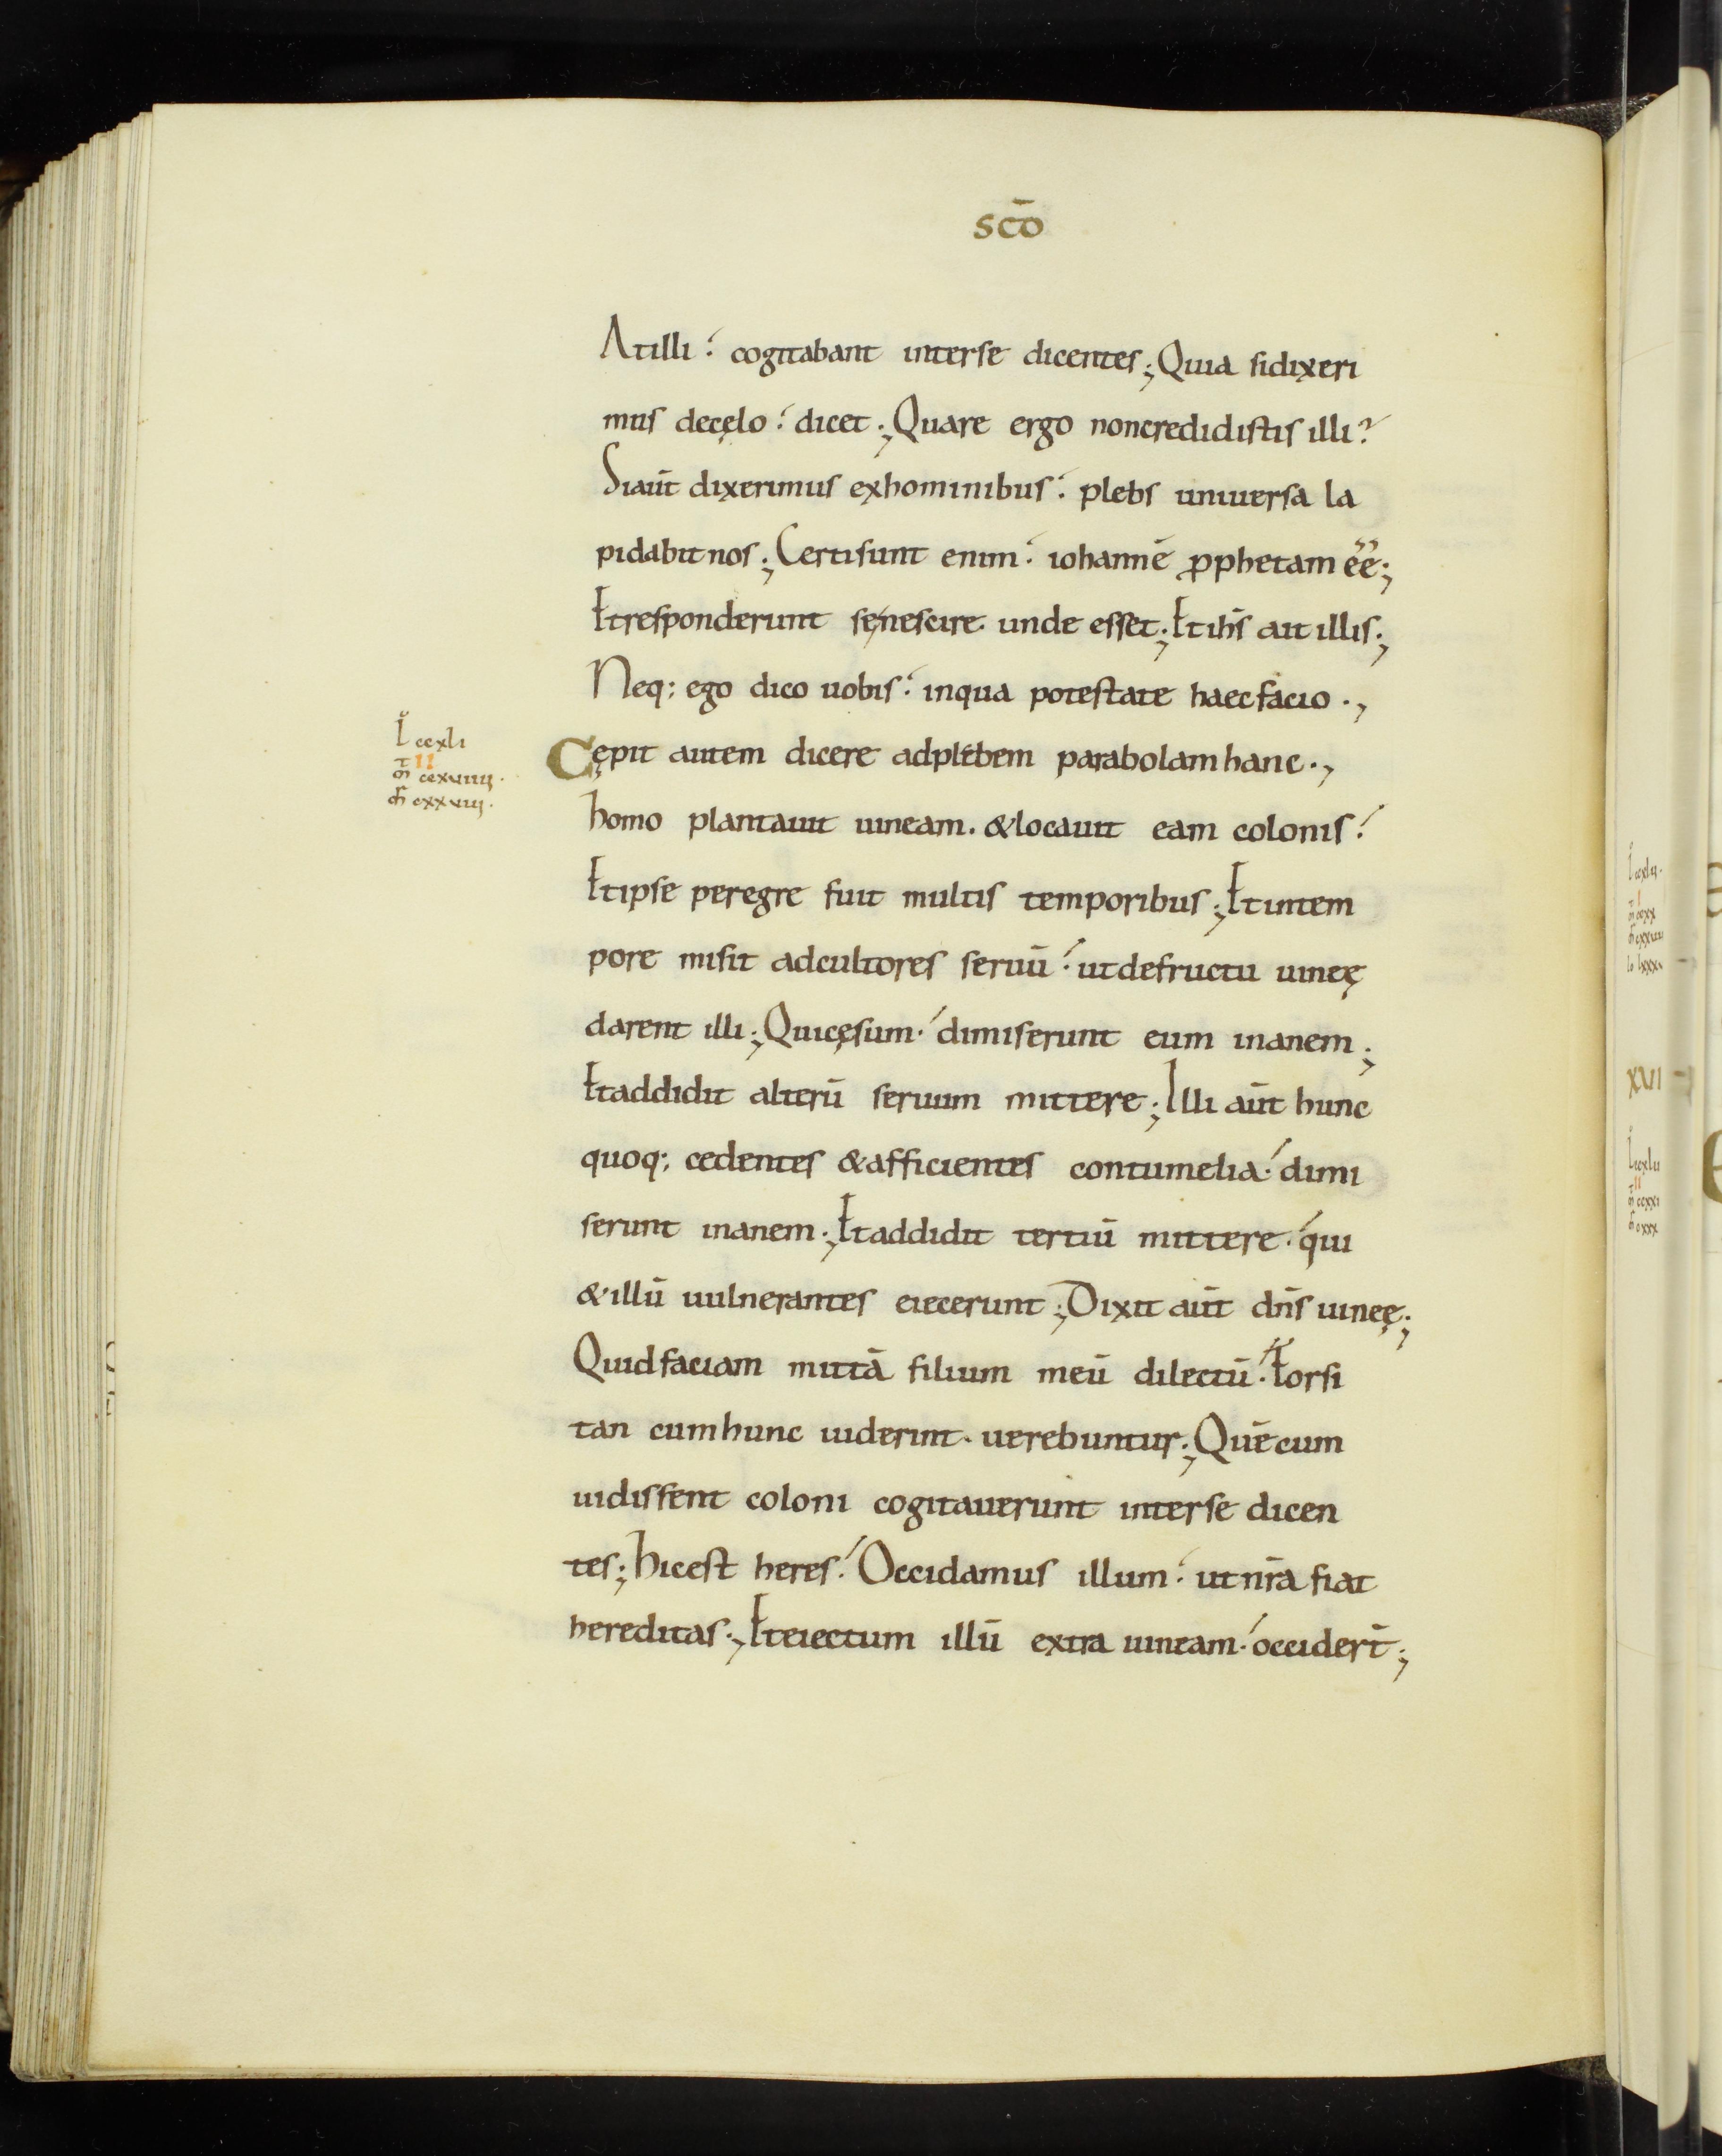 sc̄o
Atilli: cogitabant interse dicentes; Quia sidixeri
mus decęlo: dicet; Quare ergo noncredidistis illi?
Siaūt dixerimus exhominibus: plebs uniuersa la
pidabit nos; Certisunt enim: iohannē ꝓphetam ēē;
Etresponderunt se nescire unde esset; Et ihs̄ ait illis;
Neq; ego dico uobis: inqua potestate haecfacio.,
L ccxli
m̄ II ccxuiiii.
m̄ cxxuiii.
Cępit autem dicere adplebem parabolamhanc.,
homo plantauit uineam. &locauit eam colonis:
Etipse peregre fuit multis temporibus; Etintem
pore misit adcultores seruū: utdefructu uineę
darent illi; Quicęsum: dimiserunt eum inanem;
Etaddidit alterū seruum mittere; Illi aūt hunc
quoq; cedentes &afficientes contumelia: dimi
serunt inanem; Etaddidit tertiū mittere: qui
&illū uulnerantes eiecerunt; Dixit aūt dn̄s uineę;
Quidfaciam mittā filium meū dilectū: Forsi
tan cumhunc uiderint. uerebuntur; Quē cum
uidissent coloni cogitauerunt interse dicen
tes; hicest heres: Occidamus illum: ut nr̄a fiat
hereditas; Eteiectum illū extra uineam: occidert̄;
XVII